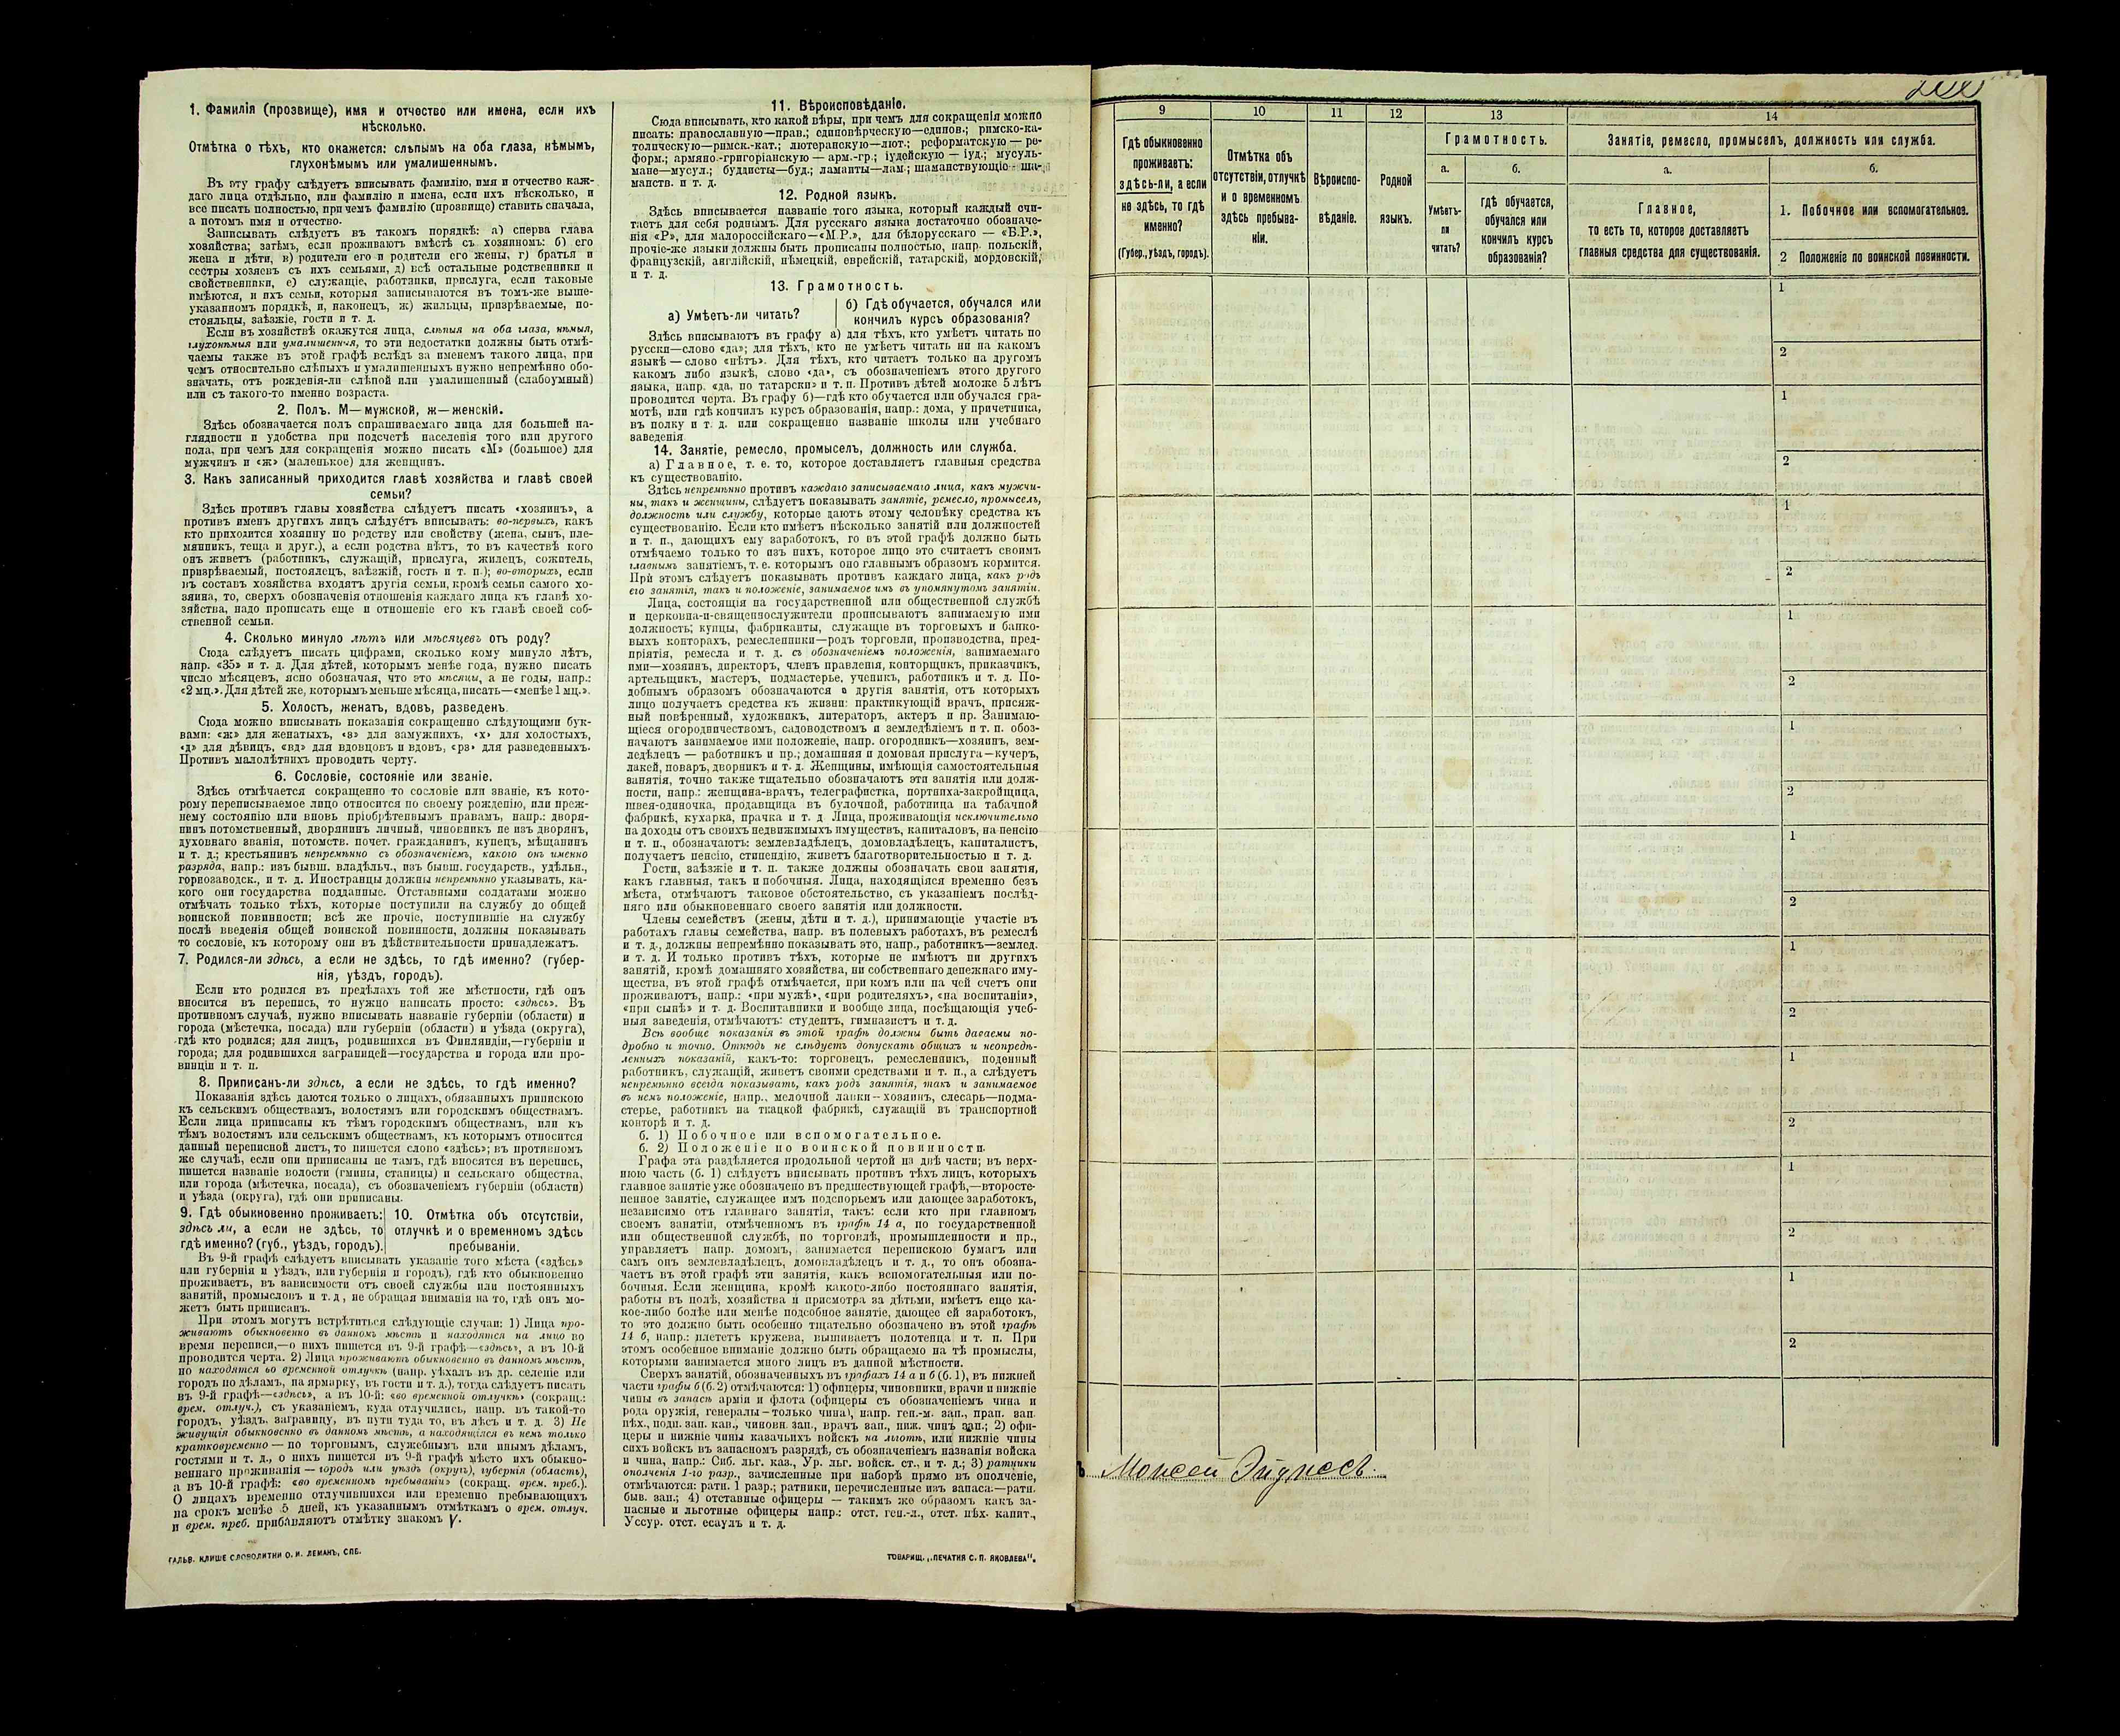 1. Фамилія (прозвище), имя и отчество или имена, если ихъ
нѣсколько.
Отмѣтка о тѣхъ, кто окажется: слѣпымъ на оба глаза, нѣмымъ,
глухонѣмымъ или умалишеннымъ.
Въ эту графу слѣдуетъ вписывать фамилію, имя и отчество каж-
даго лица отдѣльно, или фамилію и имена, если ихъ нѣсколько, и
все писать полностью, при чемъ фамилію (прозвище) ставить сначала,
а потомъ имя и отчество.
Записывать слѣдуетъ въ такомъ порядкѣ: а) сперва глава
хозяйства; затѣмъ, если проживаютъ вмѣстѣ съ хозяиномъ: б) его
жена и дѣти, в) родители его и родители его жены, г) братья и
сестры хозяевъ съ ихъ семьями, д) всѣ остальные родственники и
свойственники, е) служащіе, работники, прислуга, если таковые
имѣются, и ихъ семьи, которыя записываются въ томъ-же выше-
указанномъ порядкѣ, и, наконецъ, ж) жильцы, призрѣваемые, по-
стояльцы, заѣзжіе, гости и т. д.
Если въ хозяйствѣ окажутся лица, слѣпыя на оба глаза, нѣмыя,
глухонѣмыя или умалишенныя, то эти недостатки должны быть отмѣ-
чаемы также въ этой графѣ вслѣдъ за именемъ такого лица, при
чемъ относительно слѣпыхъ и умалишенныхъ нужно непремѣнно обо-
значать, отъ рожденія-ли слѣпой или умалишенный (слабоумный)
или съ такого-то именно возраста.
2. Полъ. М—мужской, ж—женскій.
Здѣсь обозначается полъ спрашиваемаго лица для большей на-
глядности и удобства при подсчетѣ населенія того или другого
пола, при чемъ для сокращенія можно писать «М» (большое) для
мужчинъ и «ж» (маленькое) для женщинъ.
3. Какъ записанный приходится главѣ хозяйства и главѣ своей
семьи?
Здѣсь противъ главы хозяйства слѣдуетъ писать «хозяинъ», а
противъ именъ другихъ лицъ слѣдуетъ вписывать: во-первыхъ, какъ
кто приходится хозяину по родству или свойству (жена, сынъ, пле-
мянникъ, теща и друг.), а если родства нѣтъ, то въ качествѣ кого
онъ живетъ (работникъ, служащій, прислуга, жилецъ, сожитель,
призрѣваемый, постоялецъ, заѣзжій, гость и т. п.); во-вторыхъ, если
въ составъ хозяйства входятъ другія семьи, кромѣ семьи самого хо-
зяина, то, сверхъ обозначенія отношенія каждаго лица къ главѣ хо-
зяйства, надо прописать еще и отношеніе его къ главѣ своей соб-
ственной семьи.
4. Сколько минуло лѣтъ или мѣсяцевъ отъ роду?
Сюда слѣдуетъ писать цифрами, сколько кому минуло лѣтъ,
напр. «35» и т. д. Для дѣтей, которымъ менѣе года, нужно писать
число мѣсяцевъ, ясно обозначая, что это мѣсяцы, а не годы, напр.:
«2 мц.». Для дѣтей же, которымъ меньше мѣсяца, писать—«менѣе 1 мц.».
5. Холостъ, женатъ, вдовъ, разведенъ.
Сюда можно вписывать показанія сокращенно слѣдующими бук-
вами: «ж» для женатыхъ, «з» для замужнихъ, «х» для холостыхъ,
«д» для дѣвицъ, «вд» для вдовцовъ и вдовъ, «рз» для разведенныхъ.
Противъ малолѣтнихъ проводить черту.
6. Сословіе, состояніе или званіе.
Здѣсь отмѣчается сокращенно то сословіе или званіе, къ кото-
рому переписываемое лицо относится по своему рожденію, или преж-
нему состоянію или вновь пріобрѣтеннымъ правамъ, напр.: дворя-
нинъ потомственный, дворянинъ личный, чиновникъ не изъ дворянъ,
духовнаго званія, потомств. почет. гражданинъ, купецъ, мѣщанинъ
и т. д.; крестьянинъ непремѣнно съ обозначеніемъ, какого онъ именно
разряда, напр.: изъ бывш. владѣльч., изъ бывш. государств., удѣльн.,
горнозаводск., и т. д. Иностранцы должны непремѣнно указывать, ка-
кого они государства подданные. Отставными солдатами можно
отмѣчать только тѣхъ, которые поступили на службу до общей
воинской повинности; всѣ же прочіе, поступившіе на службу
послѣ введенія общей воинской повинности, должны показывать
то сословіе, къ которому они въ дѣйствительности принадлежатъ.
7. Родился-ли здѣсь, а если не здѣсь, то гдѣ именно? (губер-
нія, уѣздъ, городъ).
Если кто родился въ предѣлахъ той же мѣстности, гдѣ онъ
вносится въ перепись, то нужно написать просто: «здѣсь». Въ
противномъ случаѣ, нужно вписывать названіе губерніи (области) и
города (мѣстечка, посада) или губерніи (области) и уѣзда (округа),
гдѣ кто родился; для лицъ, родившихся въ Финляндіи,—губерніи и
города; для родившихся заграницей—государства и города или про-
винціи и т. п.
8. Приписанъ-ли здѣсь, а если не здѣсь, то гдѣ именно?
Показанія здѣсь даются только о лицахъ, обязанныхъ припискою
къ сельскимъ обществамъ, волостямъ или городскимъ обществамъ.
Если лица приписаны къ тѣмъ городскимъ обществамъ, или къ
тѣмъ волостямъ или сельскимъ обществамъ, къ которымъ относится
данный переписной листъ, то пишется слово «здѣсь»; въ противномъ
же случаѣ, если они приписаны не тамъ, гдѣ вносятся въ перепись,
пишется названіе волости (гмины, станицы) и сельскаго общества,
или города (мѣстечка, посада), съ обозначеніемъ губерніи (области)
и уѣзда (округа), гдѣ они приписаны.
9. Гдѣ обыкновенно проживаетъ:
здѣсь ли, а если не здѣсь, то
гдѣ именно? (губ., уѣздъ, городъ).
10. Отмѣтка объ отсутствіи,
отлучкѣ и о временномъ здѣсь
пребываніи.
Въ 9-й графѣ слѣдуетъ вписывать указаніе того мѣста («здѣсь»
или губернія и уѣздъ, или губернія и городъ), гдѣ кто обыкновенно
проживаетъ, въ зависимости отъ своей службы или постоянныхъ
занятій, промысловъ и т. д, не обращая вниманія на то, гдѣ онъ мо-
жетъ быть приписанъ.
При этомъ могутъ встрѣтиться слѣдующіе случаи: 1) Лица про-
живаютъ обыкновенно въ данномъ мѣстѣ и находятся на лицо во
время переписи,—о нихъ пишется въ 9-й графѣ—«здѣсь», а въ 10-й
проводится черта. 2) Лица проживаютъ обыкновенно въ данномъ мѣстѣ,
но находятся во временной отлучкѣ (напр. уѣхалъ въ др. селеніе или
городъ по дѣламъ, на ярмарку, въ гости и т. д.), тогда слѣдуетъ писать
въ 9-й графѣ—«здѣсь», а въ 10-й: «во временной отлучкѣ» (сокращ.:
врем. отлуч.), съ указаніемъ, куда отлучились, напр. въ такой-то
городъ, уѣздъ, заграницу, въ пути туда то, въ лѣсъ и т. д. 3) Не
живущія обыкновенно въ данномъ мѣстѣ, а находящіяся въ немъ только
кратковременно — по торговымъ, служебнымъ или инымъ дѣламъ,
гостями и т. д., о нихъ пишется въ 9-й графѣ мѣсто ихъ обыкно-
веннаго проживанія — городъ или уѣздъ (округъ), губернія (область),
а въ 10-й графѣ: «во временномъ пребываніи» (сокращ. врем. преб.).
О лицахъ временно отлучившихся или временно пребывающихъ
на срокъ менѣе 5 дней, къ указаннымъ отмѣткамъ о врем. отлуч.
и врем. преб. прибавляютъ отмѣтку знакомъ V.
ГАЛЬВ. КЛИШЕ СЛОВОЛИТНИ О. И. ЛЕМАНЪ, СПБ.
11. Вѣроисповѣданіе.
Сюда вписывать, кто какой вѣры, при чемъ для сокращенія можно
писать: православную—прав.; единовѣрческую—единов.; римско-ка-
толическую—римск.-кат.; лютеранскую—лют.; реформатскую — ре-
форм.; армяно.-григоріанскую — арм.-гр.; іудейскую — іуд.; мусуль-
мане—мусул.; буддисты—буд.; ламаиты—лам.; шаманствующіе—ша-
манств. и т. д.
12. Родной языкъ.
Здѣсь вписывается названіе того языка, который каждый счи-
таетъ для себя роднымъ. Для русскаго языка достаточно обозначе-
нія «Р», для малороссійскаго—«М.Р.», для бѣлорусскаго — «Б.Р.»,
прочіе-же языки должны быть прописаны полностью, напр. польскій,
французскій, англійскій, нѣмецкій, еврейскій, татарскій, мордовскій,
и т. д.
13. Грамотность.
а) Умѣетъ-ли читать?
б) Гдѣ обучается, обучался или
кончилъ курсъ образованія?
Здѣсь вписываютъ въ графу а) для тѣхъ, кто умѣетъ читать по
русски—слово «да»; для тѣхъ, кто не умѣетъ читать ни на какомъ
языкѣ — слово «нѣтъ». Для тѣхъ, кто читаетъ только на другомъ
какомъ либо языкѣ, слово «да», съ обозначеніемъ этого другого
языка, напр. «да, по татарски» и т. п. Противъ дѣтей моложе 5 лѣтъ
проводится черта. Въ графу б)—гдѣ кто обучается или обучался гра-
мотѣ, или гдѣ кончилъ курсъ образованія, напр.: дома, у причетника,
въ полку и т. д. или сокращенно названіе школы или учебнаго
заведенія
14. Занятіе, ремесло, промыселъ, должность или служба.
а) Главное, т. е. то, которое доставляетъ главныя средства
къ существованію.
Здѣсь непремѣнно противъ каждаго записываемаго лица, какъ мужчи-
ны, такъ и женщины, слѣдуетъ показывать занятіе, ремесло, промыселъ,
должность или службу, которые даютъ этому человѣку средства къ
существованію. Если кто имѣетъ нѣсколько занятій или должностей
и т. п., дающихъ ему заработокъ, то въ этой графѣ должно быть
отмѣчаемо только то изъ нихъ, которое лицо это считаетъ своимъ
главнымъ занятіемъ, т. е. которымъ оно главнымъ образомъ кормится.
При этомъ слѣдуетъ показывать противъ каждаго лица, какъ родъ
его занятія, такъ и положеніе, занимаемое имъ въ упомянутомъ занятіи.
Лица, состоящія на государственной или общественной службѣ
и церковно-и-священнослужители прописываютъ занимаемую ими
должность; купцы, фабриканты, служащіе въ торговыхъ и банко-
выхъ конторахъ, ремесленники—родъ торговли, производства, пред-
пріятія, ремесла и т. д. съ обозначеніемъ положенія, занимаемаго
ими—хозяинъ, директоръ, членъ правленія, конторщикъ, приказчикъ,
артельщикъ, мастеръ, подмастерье, ученикъ, работникъ и т. д. По-
добнымъ образомъ обозначаются и другія занятія, отъ которыхъ
лицо получаетъ средства къ жизни: практикующій врачъ, присяж-
ный повѣренный, художникъ, литераторъ, актеръ и пр. Занимаю-
щіеся огородничествомъ, садоводствомъ и земледѣліемъ и т. п. обоз-
начаютъ занимаемое ими положеніе, напр. огородникъ—хозяинъ, зем-
ледѣлецъ — работникъ и пр.; домашняя и домовая прислуга—кучеръ,
лакей, поваръ, дворникъ и т. д. Женщины, имѣющія самостоятельныя
занятія, точно также тщательно обозначаютъ эти занятія или долж-
ности, напр.: женщина-врачъ, телеграфистка, портниха-закройщица,
швея-одиночка, продавщица въ булочной, работница на табачной
фабрикѣ, кухарка, прачка и т. д Лица, проживающія исключительно
на доходы отъ своихъ недвижимыхъ имуществъ, капиталовъ, на пенсію
и т. п., обозначаютъ: землевладѣлецъ, домовладѣлецъ, капиталистъ,
получаетъ пенсію, стипендію, живетъ благотворительностью и т. д.
Гости, заѣзжіе и т. п. также должны обозначать свои занятія,
какъ главныя, такъ и побочныя. Лица, находящіяся временно безъ
мѣста, отмѣчаютъ таковое обстоятельство, съ указаніемъ послѣд-
няго или обыкновеннаго своего занятія или должности.
Члены семействъ (жены, дѣти и т. д.), принимающіе участіе въ
работахъ главы семейства, напр. въ полевыхъ работахъ, въ ремеслѣ
и т. д., должны непремѣнно показывать это, напр., работникъ—землед.
и т. д. И только противъ тѣхъ, которые не имѣютъ ни другихъ
занятій, кромѣ домашняго хозяйства, ни собственнаго денежнаго иму-
щества, въ этой графѣ отмѣчается, при комъ или на чей счетъ они
проживаютъ, напр.: «при мужѣ», «при родителяхъ», «на воспитаніи»,
«при сынѣ» и т. д. Воспитанники и вообще лица, посѣщающія учеб-
ныя заведенія, отмѣчаютъ: студентъ, гимназистъ и т. д.
Всѣ вообще показанія въ этой графѣ должны быть даваемы по-
дробно и точно. Отнюдь не слѣдуетъ допускать общихъ и неопредѣ-
ленныхъ показаній, какъ-то: торговецъ, ремесленникъ, поденный
работникъ, служащій, живетъ своими средствами и т. п., а слѣдуетъ
непремѣнно всегда показывать, какъ родъ занятія, такъ и занимаемое
въ немъ положеніе, напр., мелочной лавки—хозяинъ, слесарь—подма-
стерье, работникъ на ткацкой фабрикѣ, служащій въ транспортной
конторѣ и т. д.
б. 1) Побочное или вспомогательное.
б. 2) Положеніе по воинской повинности.
Графа эта раздѣляется продольной чертой на двѣ части; въ верх-
нюю часть (б. 1) слѣдуетъ вписывать противъ тѣхъ лицъ, которыхъ
главное занятіе уже обозначено въ предшествующей графѣ,—второсте-
пенное занятіе, служащее имъ подспорьемъ или дающее заработокъ,
независимо отъ главнаго занятія, такъ: если кто при главномъ
своемъ занятіи, отмѣченномъ въ графѣ 14 а, по государственной
или общественной службѣ, по торговлѣ, промышленности и пр.,
управляетъ напр. домомъ, занимается перепискою бумагъ или
самъ онъ землевладѣлецъ, домовладѣлецъ и т. д., то онъ обозна-
чаетъ въ этой графѣ эти занятія, какъ вспомогательныя или по-
бочныя. Если женщина, кромѣ какого-либо постояннаго занятія,
работы въ полѣ, хозяйства и присмотра за дѣтьми, имѣетъ еще ка-
кое-либо болѣе или менѣе подсобное занятіе, дающее ей заработокъ,
то это должно быть особенно тщательно обозначено въ этой графѣ
14 б, напр.: плететъ кружева, вышиваетъ полотенца и т. п. При
этомъ особенное вниманіе должно быть обращаемо на тѣ промыслы,
которыми занимается много лицъ въ данной мѣстности.
Сверхъ занятій, обозначенныхъ въ графахъ 14 а и б (б. 1), въ нижней
части графы б (б. 2) отмѣчаются: 1) офицеры, чиновники, врачи и нижніе
чины въ запасѣ арміи и флота (офицеры съ обозначеніемъ чина и
рода оружія, генералы—только чина), напр. ген.-м. зап., прап. зап.
пѣх., подп. зап. кав., чиновн. зап., врачъ зап., ниж. чинъ зап.; 2) офи-
церы и нижніе чины казачьихъ войскъ на льготѣ, или нижніе чины
сихъ войскъ въ запасномъ разрядѣ, съ обозначеніемъ названія войска
и чина, напр.: Сиб. льг. каз., Ур. льг. войск. ст., и т. д.; 3) ратники
ополченія 1-го разр., зачисленные при наборѣ прямо въ ополченіе,
отмѣчаются: ратн. 1 разр.; ратники, перечисленные изъ запаса:—ратн.
быв. зап.; 4) отставные офицеры — такимъ же образомъ какъ за-
пасные и льготные офицеры напр.: отст. ген.-л., отст. пѣх. капит.,
Уссур. отст. есаулъ и т. д.
ТОВАРИЩ. „ПЕЧАТНЯ С. П. ЯКОВЛЕВА".
9
10
11
12
13
14
Гдѣ обыкновенно
проживаетъ:
здѣсь-ли, а если
не здѣсь, то гдѣ
именно?
(Губер., уѣздъ, городъ).
Отмѣтка объ
отсутствіи, отлучкѣ
и о временномъ
здѣсь пребыва-
ніи.
Вѣроиспо-
вѣданіе.
Родной
языкъ.
Грамотность.
а.
Умѣетъ-
ли
читать?
б.
гдѣ обучается,
обучался или
кончилъ курсъ
образованія?
Занятіе, ремесло, промыселъ, должность или служба.
а.
Главное,
то есть то, которое доставляетъ
главныя средства для существованія.
б.
1. Побочное или вспомогательное.
2 Положеніе по воинской повинности.
1
2
1
2
1
2
1
2
1
2
1
2
1
2
1
2
1
2
1
2
ъ Моисей Эйдукасъ.